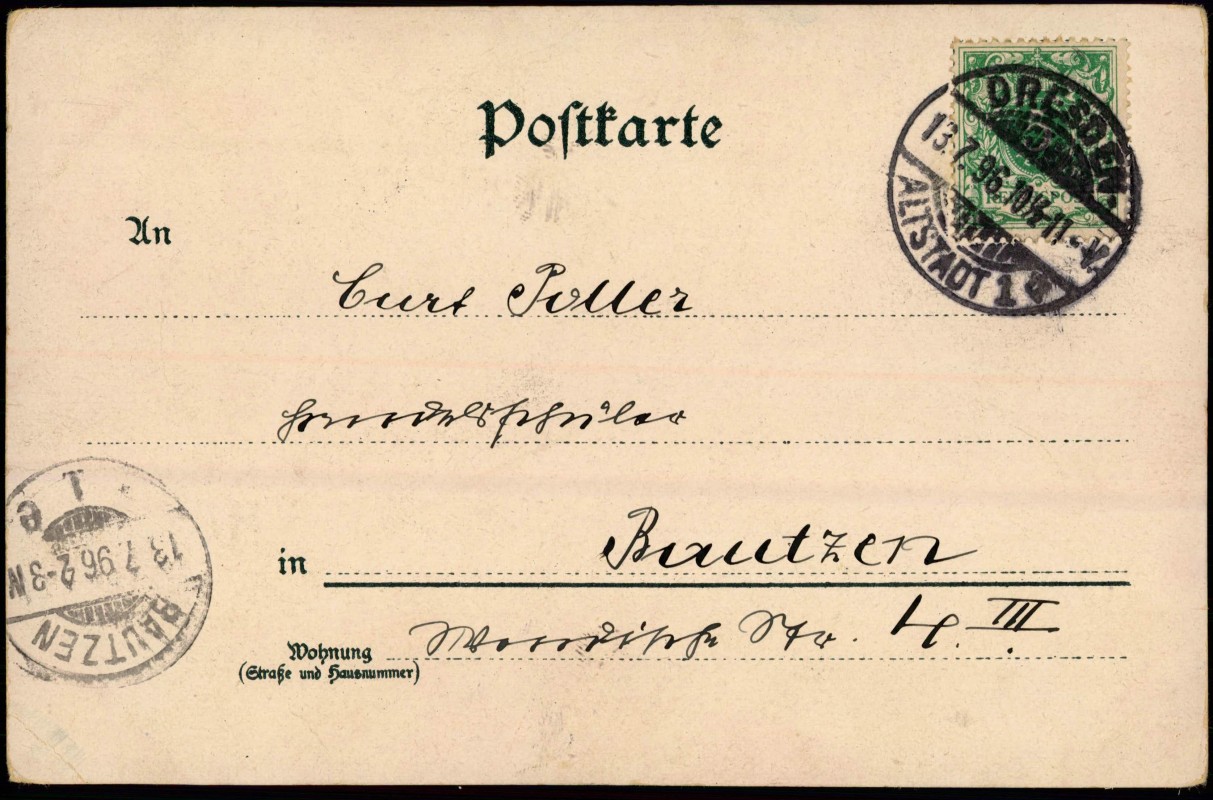 Postkarte
DRESDEN
13.7.96.10½-11
ALTSTADT 1
An
Curt Poller
Handelsschüler
in Bautzen
Wohnung
(Straße und Hausnummer)
Wendische Str. 4. III
1 c
13.7.96.2-3N
BAUTZEN